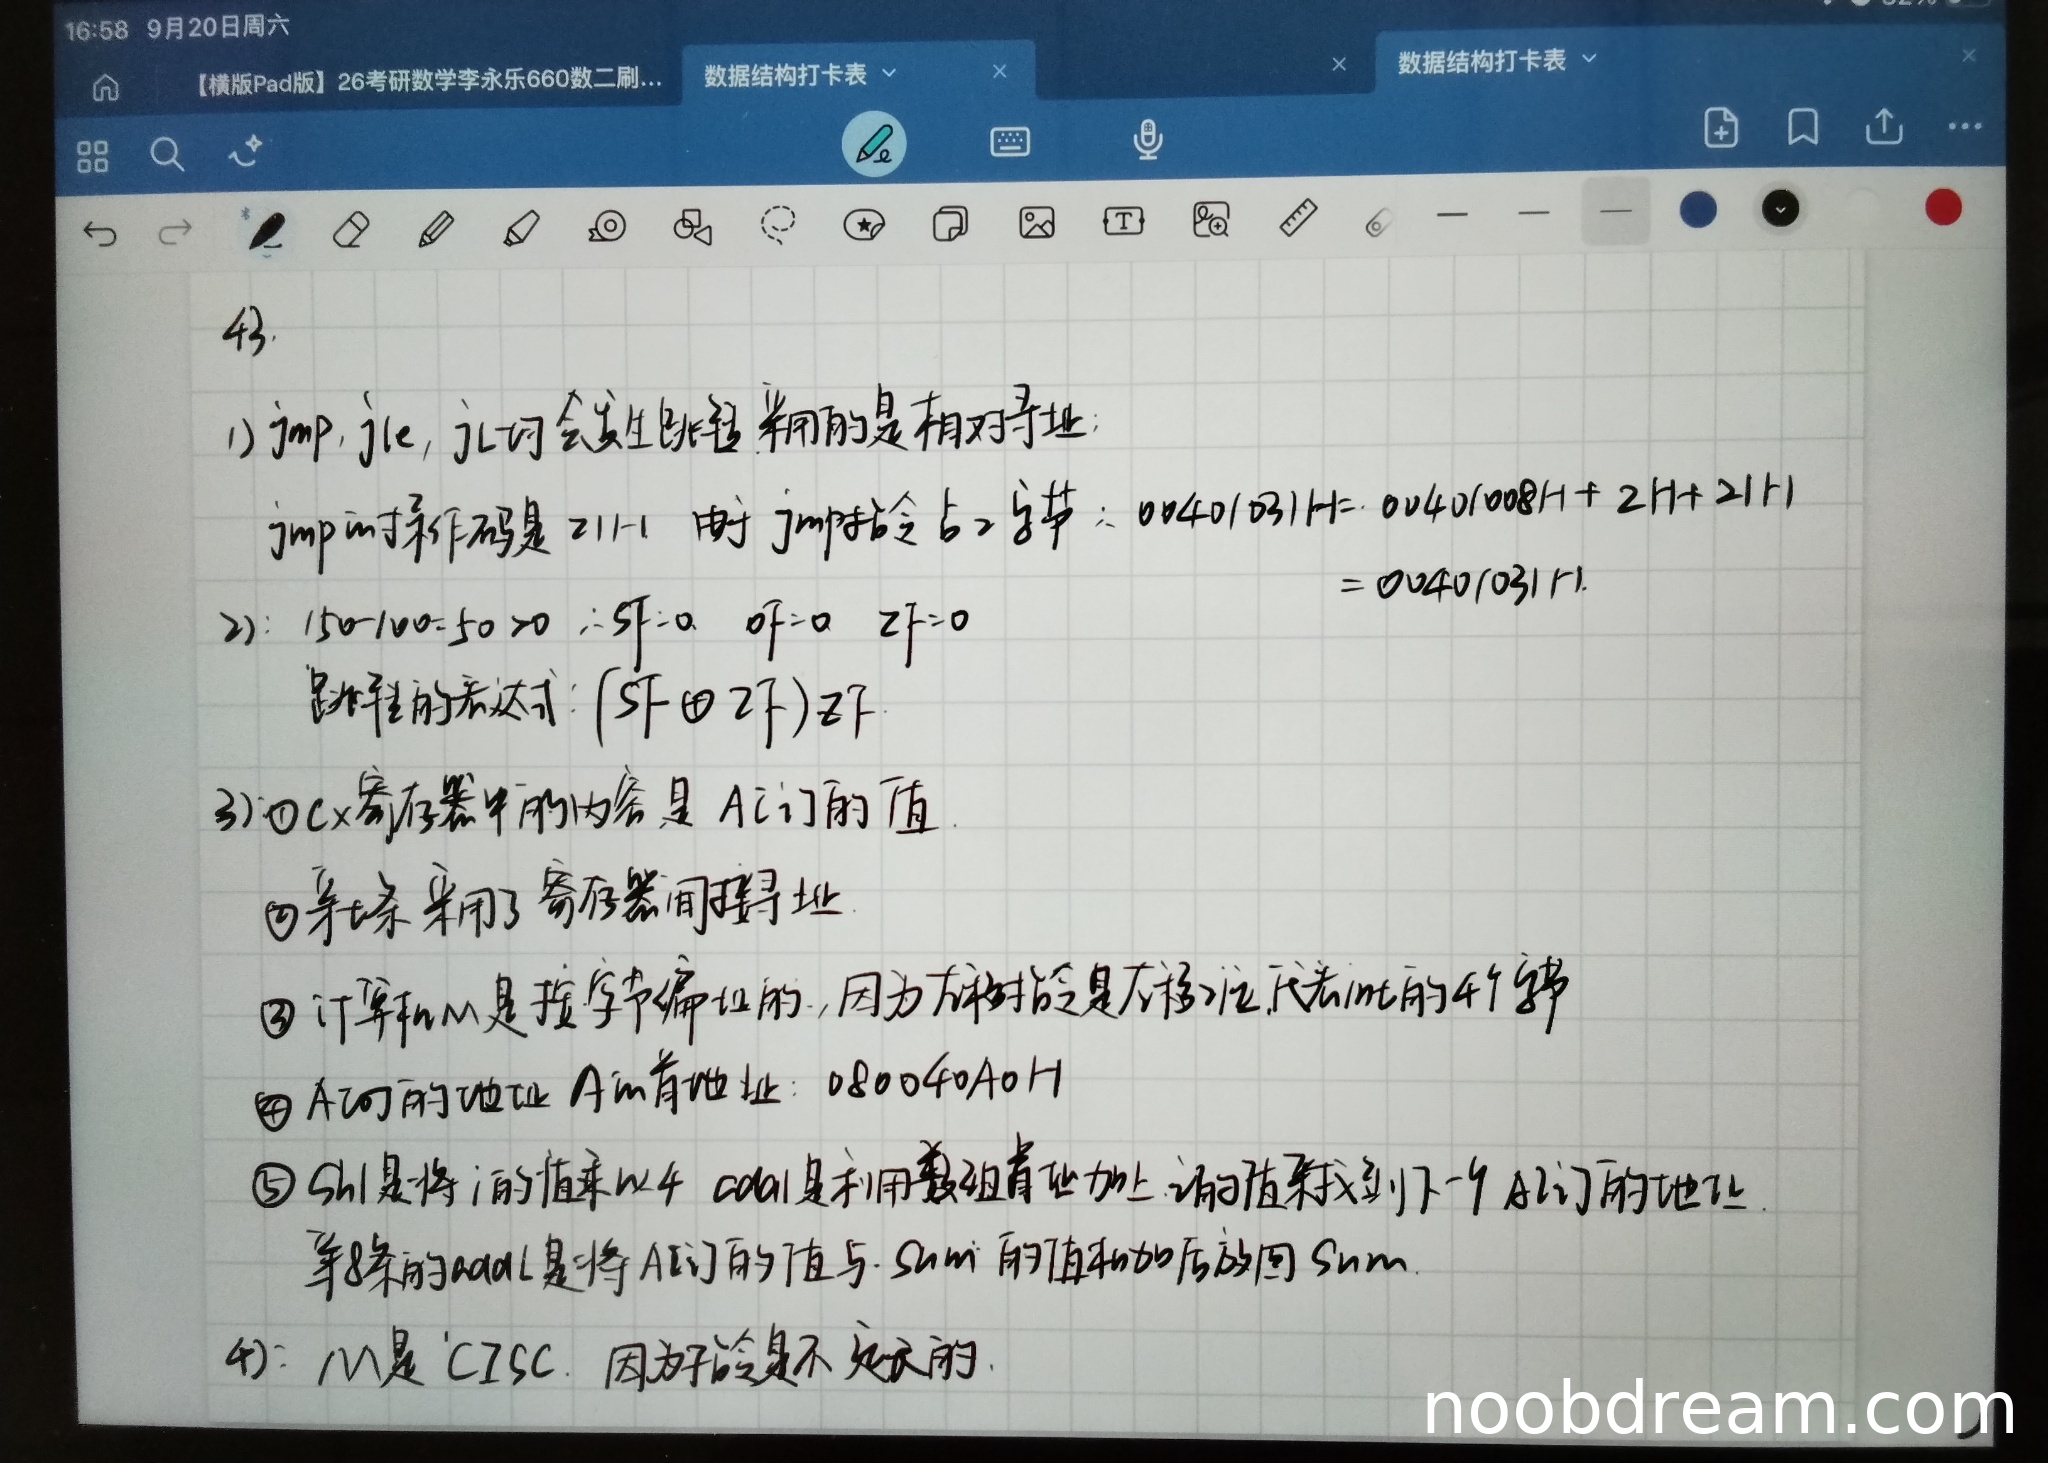 16:58 9月20日周六
【横版Pad版】26考研数学李永乐660数二刷... 数据结构打卡表 数据结构打卡表
43.
1) jmp, jle, jL均会发生跳转 采用的是相对寻址;
jmp的操作码是21H 由于jmp指令占2字节 ∴ 00401031H = 00401008H + 2H + 21H
= 00401031H.
2): 150-100=50>0 ∴SF=0 OF=0 ZF=0
跳转的表达式: (SF⊕ZF)ZF
3):①Cx寄存器中的内容是 A[i]的值.
②第七条采用了寄存器间接寻址.
③计算机M是按字节编址的,因为左移指令是左移2位,代表int的4个字节
④A[0]的地址 A的首地址: 080040A0H
⑤ Shl是将i的值乘以4 addl是利用数组首址加上i的值来找到下一个A[i]的地址.
第8条的addL是将A[i]的值与sum的值相加后放回Sum.
4): M是CISC. 因为指令是不定长的.
noobdream.com